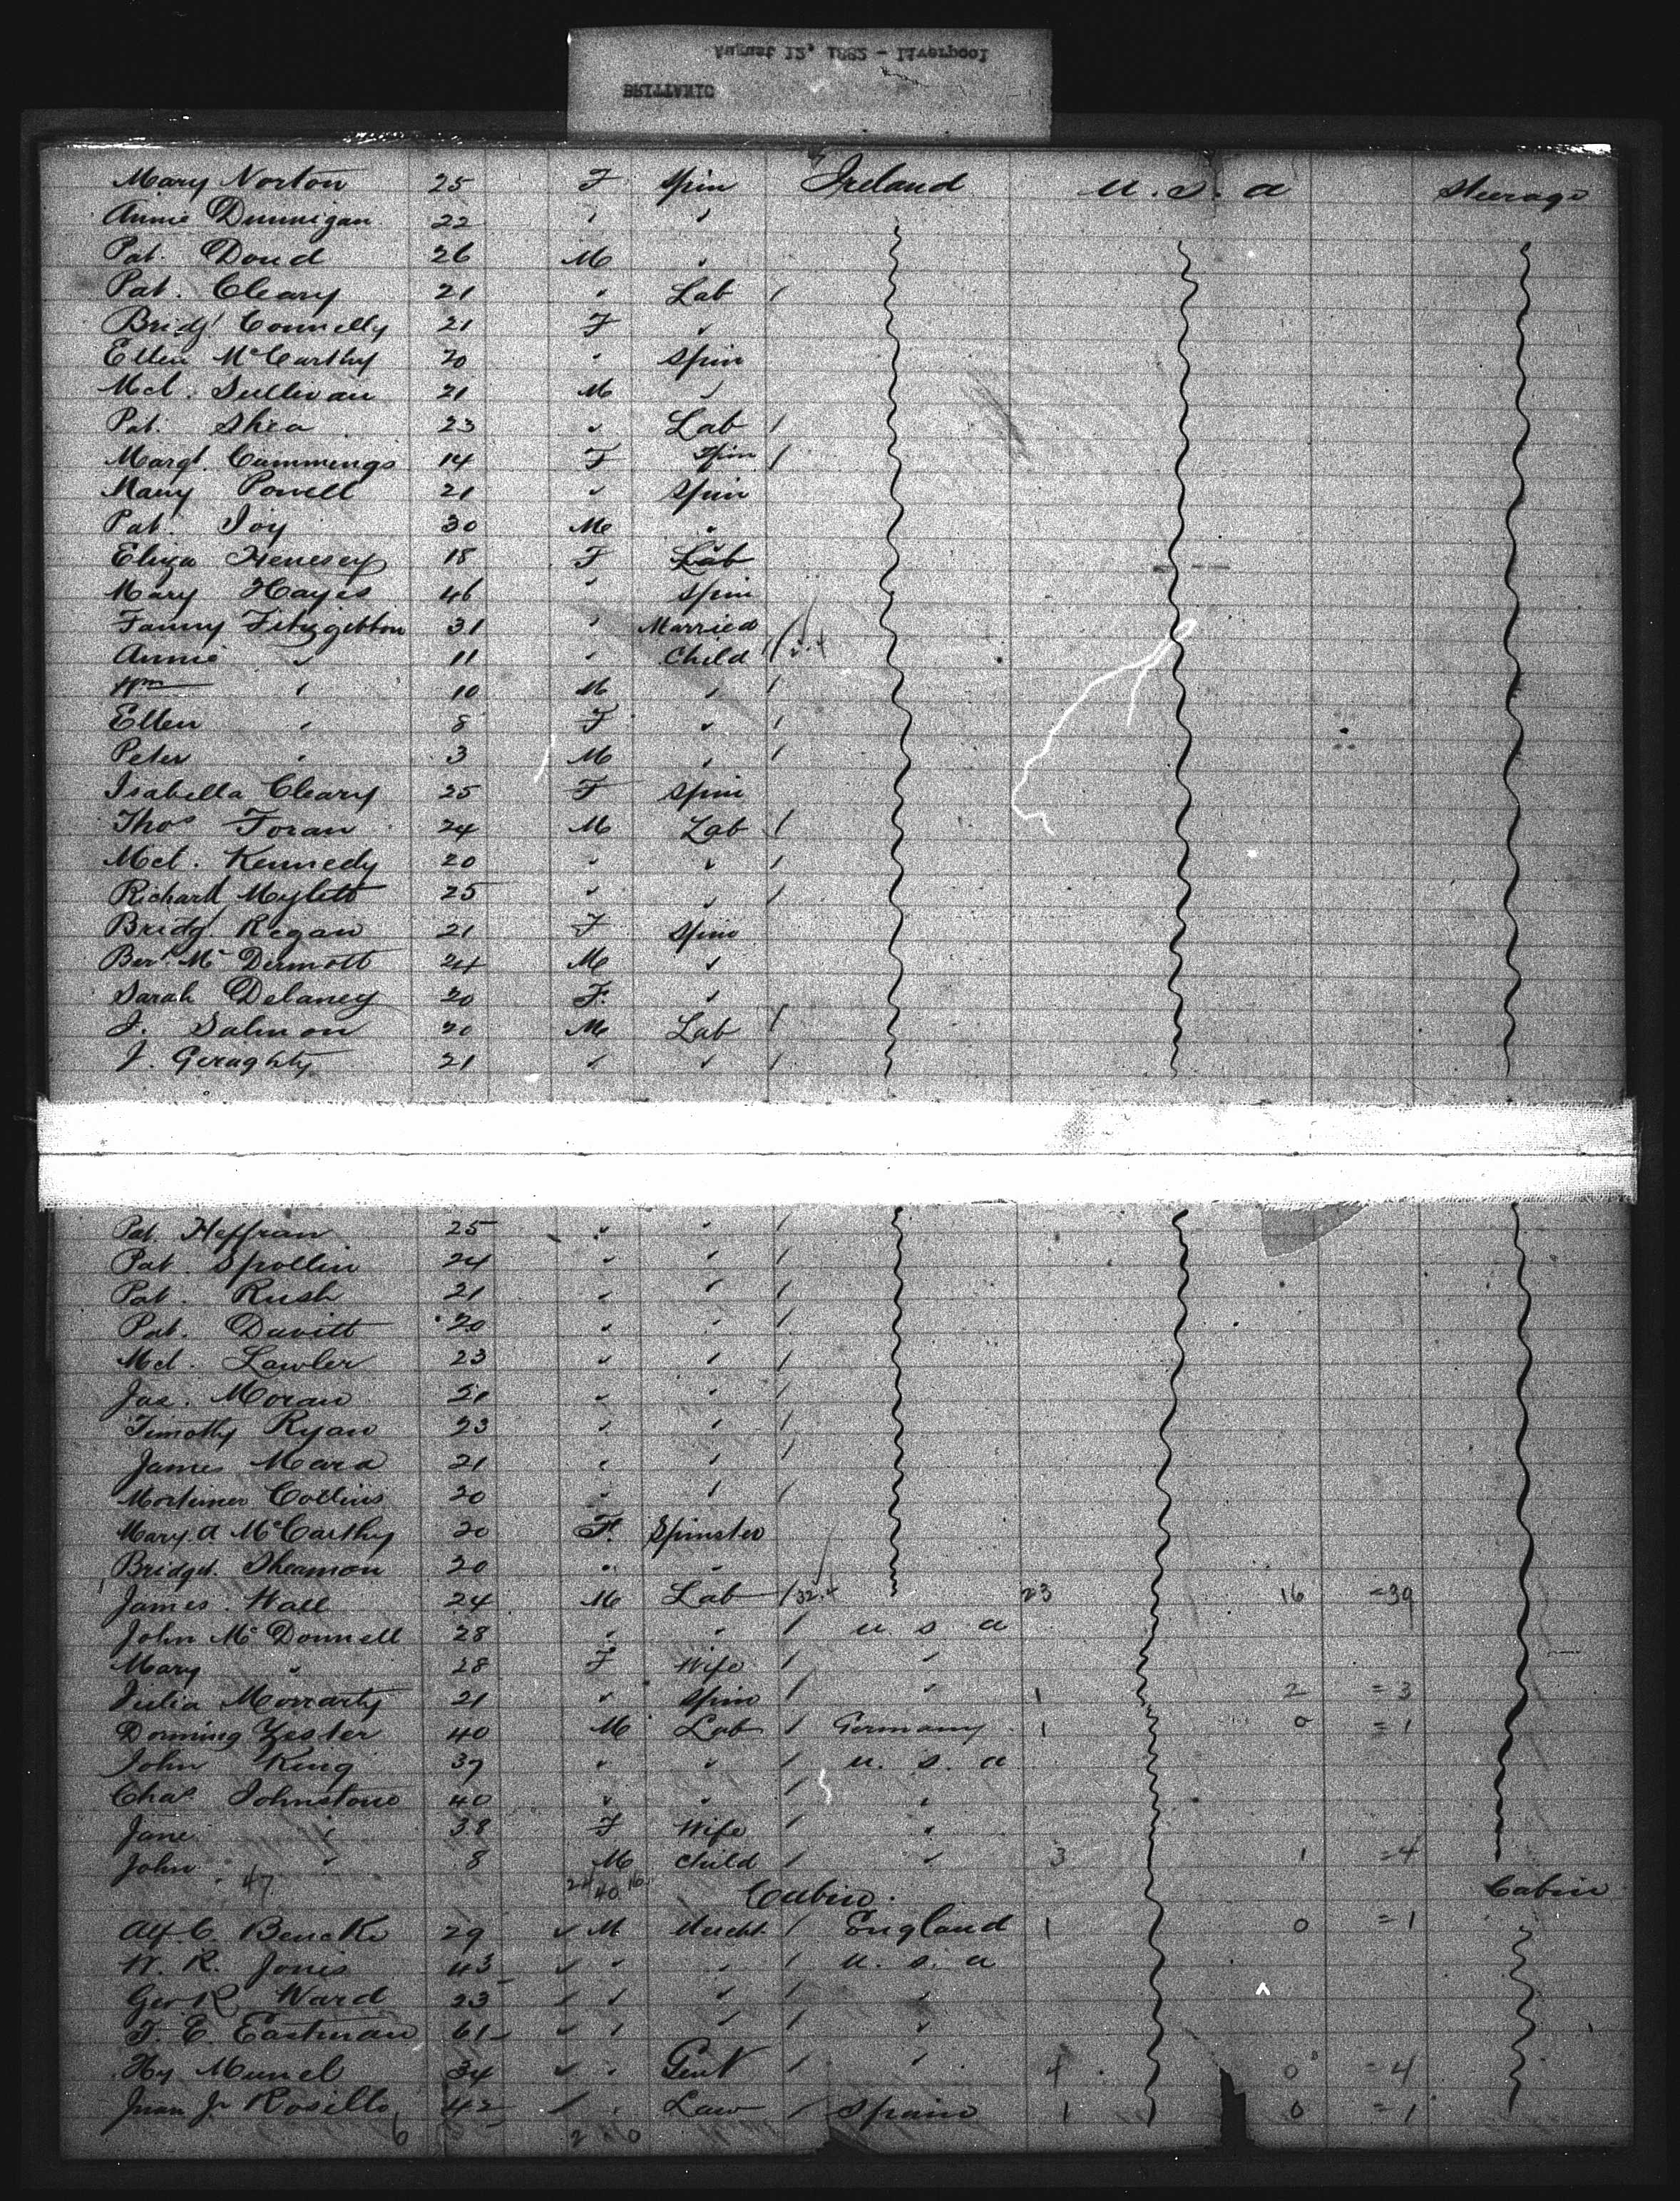 August 12, 1882 - Liverpool
BRITTANIC
Mary Norton 25 F Spin Ireland U. S. A Steerage
Annie Dunnigan 22 " "
Pat. Doud 26 M "
Pat. Cleary 21 " Lab /
Bridgt Connelly 21 F "
Ellen McCarthy 20 " Spin
Mcl. Sullivan 21 M "
Pat. Shea 23 " Lab /
Margt. Cummings 14 F Spin /
Mary Powell 21 " Spin
Pat. Joy 30 M "
Eliza Henesey 18 F Lab
Mary Hayes 46 " Spin
Fanny Fitzgibbon 31 " Married /
Annie " 11 " Child /
Wm " 10 M " /
Ellen " 8 F " /
Peter " 3 M " /
Isabella Cleary 25 F Spin
Thos Foran 24 M Lab /
Mcl. Kennedy 20 " " /
Richard Mylett 25 " " /
Bridgt Regan 21 F Spin
Berd McDermott 24 M "
Sarah Delaney 20 F. "
J. Salmon 20 M Lab /
J. Geraghty 21 " " /
Pat. Heffran 25 " " /
Pat. Spollin 24 " " /
Pat. Rush 21 " " /
Pat. Davitt 20 " " /
Mcl. Lawler 23 " " /
Jas. Moran 21 " " /
Timothy Ryan 23 " " /
James Mara 21 " " /
Mortimer Collins 20 " " /
Mary. A McCarthy 20 F. Spinster
Bridget. Shannon 20 " "
James. Wall 24 M Lab / 32 23 16 =39
John McDonnell 28 " " / U. S. A
Mary " 28 F Wife / "
Julia Morriarty 21 " Spin / " 1 2 = 3
Dorming Zester 40 M Lab / Germany 1 0 = 1
John King 37 " " / U. S. A
Chas Johnstone 40 " " / "
Jane " 38 F Wife / "
John " 8 M Child / " 3 1 =4
47 24 40 16 Cabin. Cabin
Alf. C. Bencke 29 M Mercht. / England 1 0 =1
W. R. Jones 43 " " / U. S. A
Geo R. Ward 23 " " / "
T. C. Eastman 61 " " / "
Hy Munel 34 " Gent / " 4 0 =4
Juan Jr Rosillo 42 " Law / Spain 1 0 =1
6